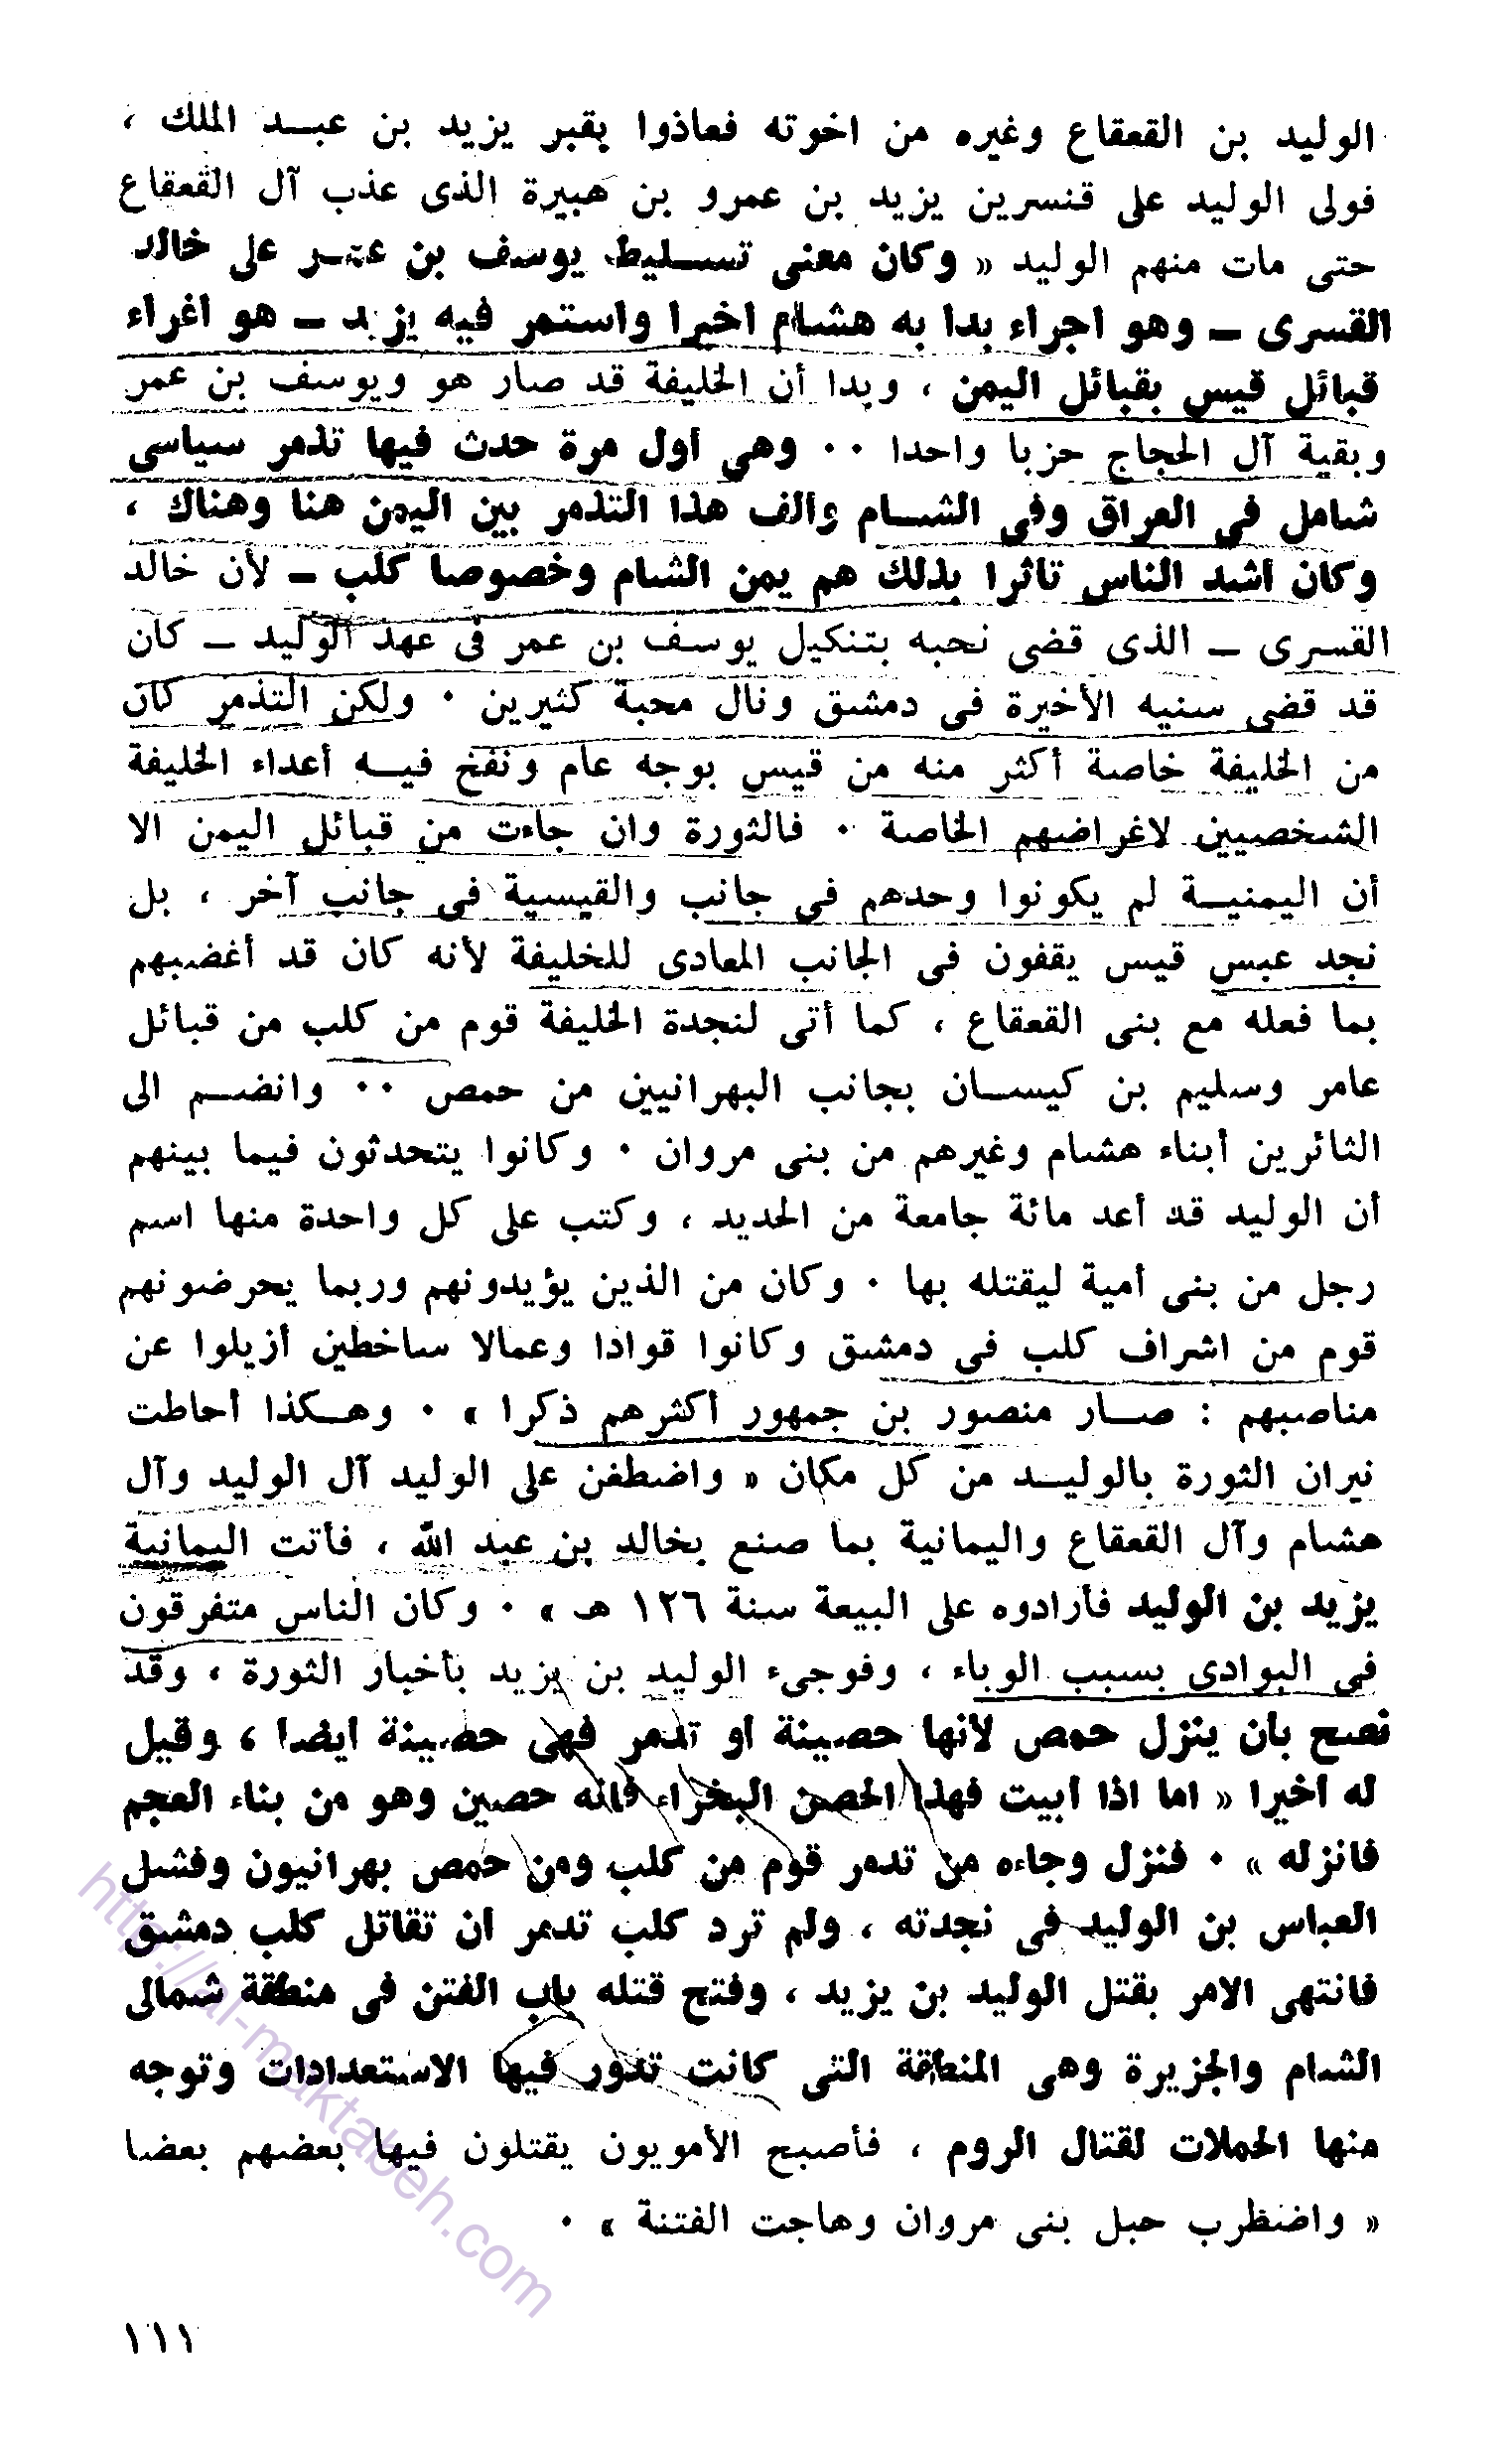 الوليد بن القعقاع وغيره من اخوته فعاذوا بقبر يزيد بن عبد الملك ،
فولى الوليد على قنسرين يزيد بن عمرو بن هبيرة الذى عذب آل القعقاع
حتى مات منهم الوليد « وكان معنى تسليط يوسف بن عمر على خالد
القسرى – وهو اجراء بدا به هشام اخيرا واستمر فيه يزيد – هو اغراء
قبائل قيس بقبائل اليمن ، وبدا أن الخليفة قد صار هو ويوسف بن عمر
وبقية آل الحجاج حزبا واحدا ٠٠ وهي أول مرة حدث فيها تذمر سياسى
شامل فى العراق وفى الشام والف هذا التذمر بين اليمن هنا وهناك ،
وكان اشد الناس تاثرا بذلك هم يمن الشام وخصوصا كلب – لأن خالد
القسرى – الذى قضى نحبه بتنكيل يوسف بن عمر فى عهد الوليد – كان
قد قضى سنيه الأخيرة فى دمشق ونال محبة كثيرين ٠ ولكن التذمر كان
من الخليفة خاصة أكثر منه من قيس بوجه عام ونفخ فيه أعداء الخليفة
الشخصيين لاغراضهم الخاصة ٠ فالثورة وان جاءت من قبائل اليمن الا
أن اليمنية لم يكونوا وحدهم فى جانب والقيسية فى جانب آخر ، بل
نجد عبس قيس يقفون فى الجانب المعادى للخليفة لأنه كان قد أغضبهم
بما فعله مع بنى القعقاع ، كما أتى لنجدة الخليفة قوم من كلب من قبائل
عامر وسليم بن كيسان بجانب البهرانيين من حمص ٠٠ وانضم الى
الثائرين أبناء هشام وغيرهم من بنى مروان ٠ وكانوا يتحدثون فيما بينهم
أن الوليد قد أعد مائة جامعة من الحديد ، وكتب على كل واحدة منها اسم
رجل من بنى أمية ليقتله بها ٠ وكان من الذين يؤيدونهم وربما يحرضونهم
قوم من اشراف كلب فى دمشق وكانوا قوادا وعمالا ساخطين أزيلوا عن
مناصبهم : صار منصور بن جمهور أكثرهم ذكرا » ٠ وهكذا أحاطت
نيران الثورة بالوليد من كل مكان « واضطغن على الوليد آل الوليد وآل
هشام وآل القعقاع واليمانية بما صنع بخالد بن عبد الله ، فأتت اليمانية
يزيد بن الوليد فأرادوه على البيعة سنة ١٢٦ هـ » ٠ وكان الناس متفرقون
فى البوادى بسبب الوباء ، وفوجىء الوليد بن يزيد بأخبار الثورة ، وقد
نصح بان ينزل حمص لأنها حصينة او تدمر فهى حصينة ايضا ، وقيل
له أخيرا « اما اذا ابيت فهذا الحصن البخراء فانه حصين وهو من بناء العجم
فانزله » ٠ فنزل وجاءه من تدمر قوم من كلب ومن حمص بهرانيون وفشل
العباس بن الوليد فى نجدته ، ولم ترد كلب تدمر ان تقاتل كلب دمشق
فانتهى الامر بقتل الوليد بن يزيد ، وفتح قتله باب الفتن فى منطقة شمالى
الشام والجزيرة وهى المنطقة التى كانت تدور فيها الاستعدادات وتوجه
منها الحملات لقتال الروم ، فأصبح الأمويون يقتلون فيها بعضهم بعضا
« واضطرب حبل بنى مروان وهاجت الفتنة » ٠
١١١
http://al-maktabeh.com